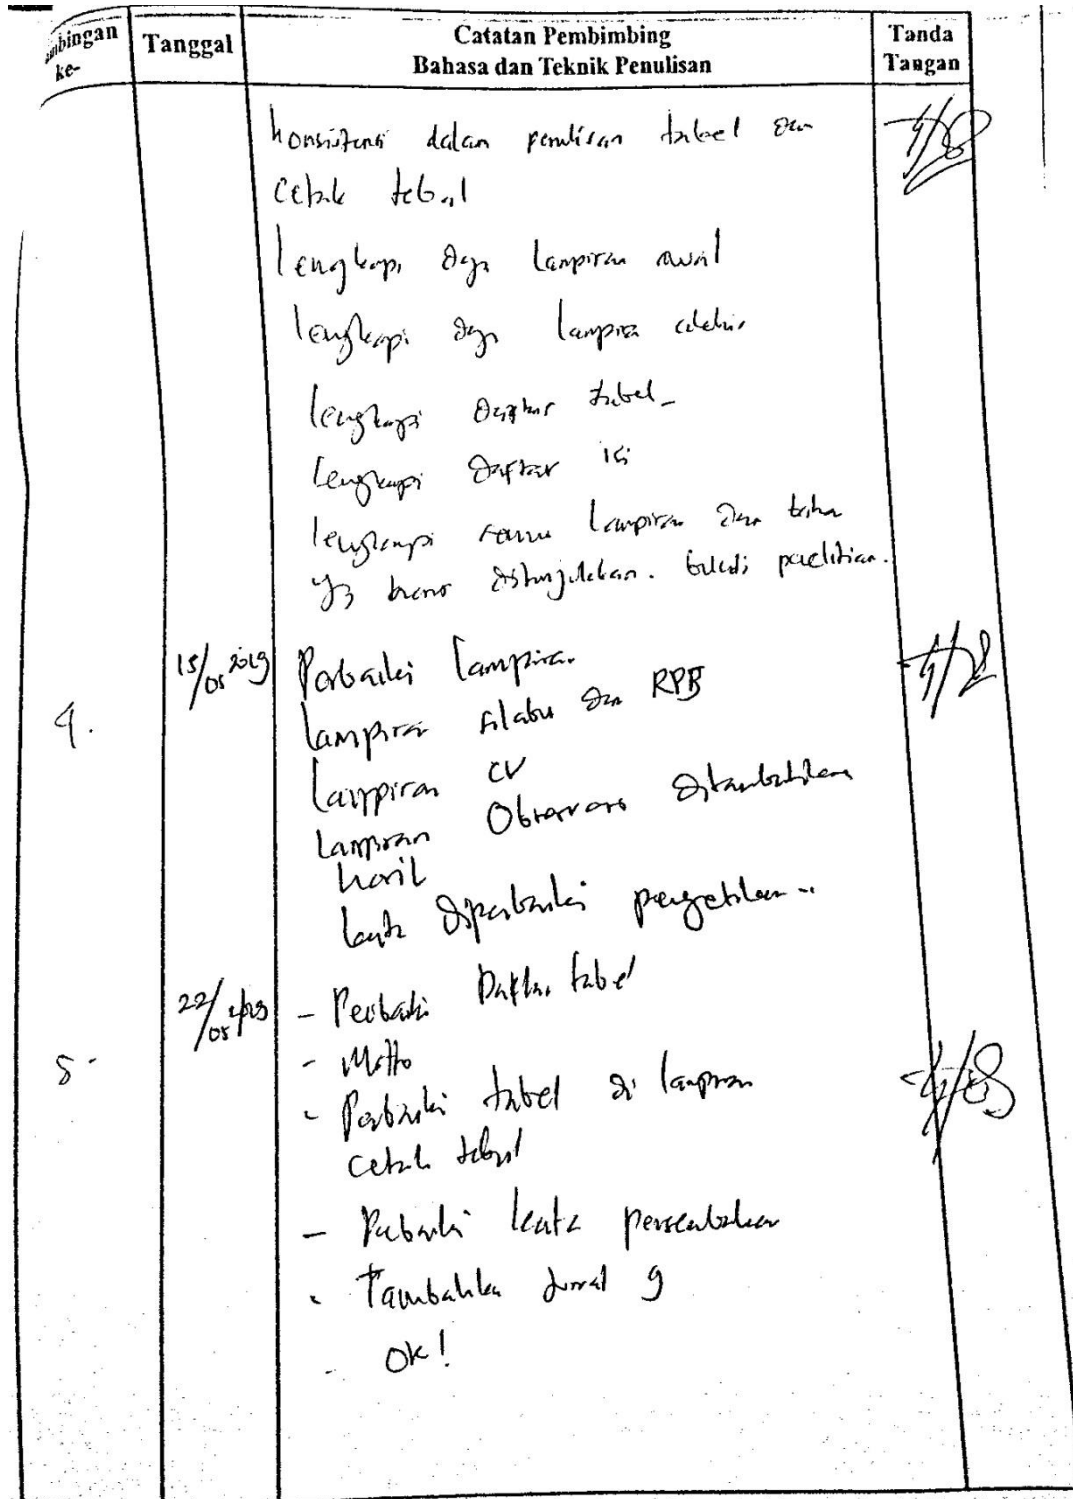 bingan ke-
Tanggal
Catatan Pembimbing
Bahasa dan Teknik Penulisan
Tanda Tangan
Konsistensi dalam penulisan tabel dan
Cetak tebal
lengkapi dgn lampiran awal
lengkapi dgn lampiran akhir
lengkapi daftar tabel
lengkapi daftar isi
lengkapi semua lampiran dan
yg harus ditunjukkan. bukti penelitian.
4.
15/05 2019
Perbaiki lampiran
lampiran silabus dan RPP
lampiran CV
lampiran Observasi ditambahkan
hasil
kata diperbaiki pengetikan
5.
22/05 2019
- Perbaiki Daftar tabel
- Motto
- Perbaiki tabel di lampiran
cetak tebal
- Perbaiki kata persembahan
- Tambahkan 9
- Ok!